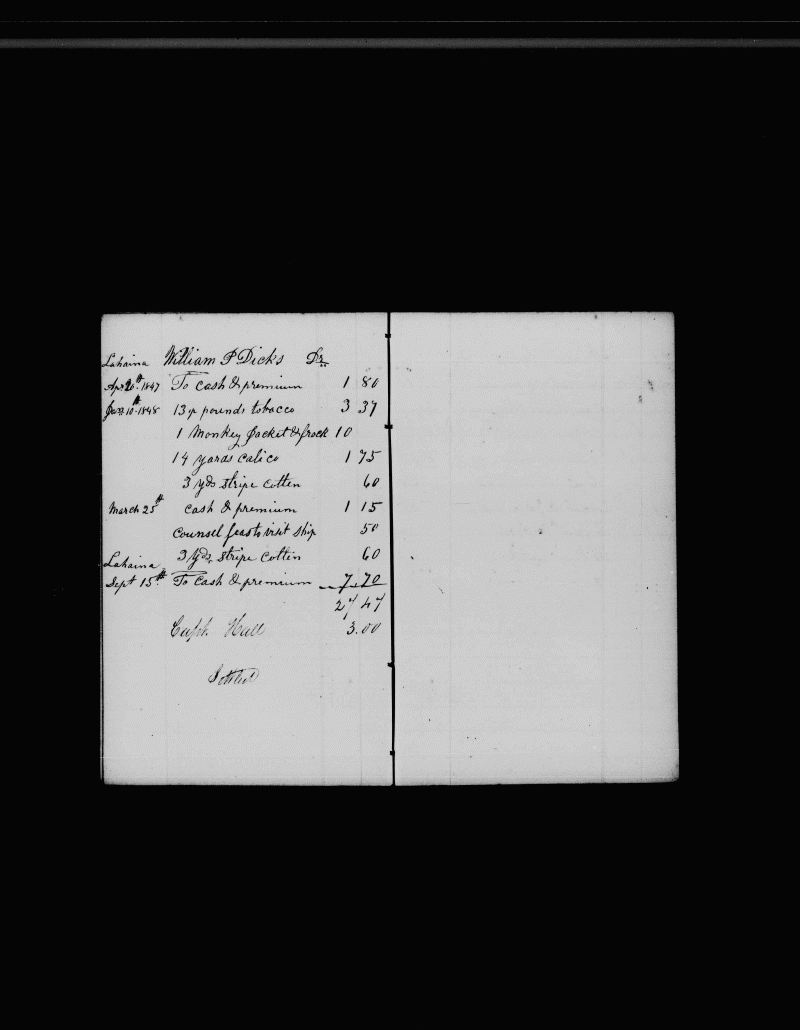 Lahaina William P Dicks Dr
Apr 20th 1847 To cash & premium 1 80
Jan 10th 1848 13½ pounds tobacco 3 37
1 Monkey Jacket & frock 10
14 yards calico 1 75
3 yds stripe cotten 60
March 25th cash & premium 1 15
Counsel visit ship 50
3 yds stripe cotten 60
Lahaina
Sept 15th To Cash & premium 7.70
27 47
Capt. Hall 3.00
Settled